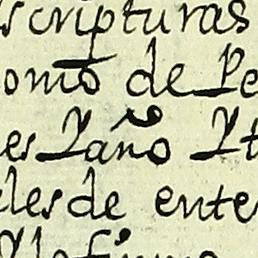 scripturas
como de Pe
es Y año Yt
eles de ente